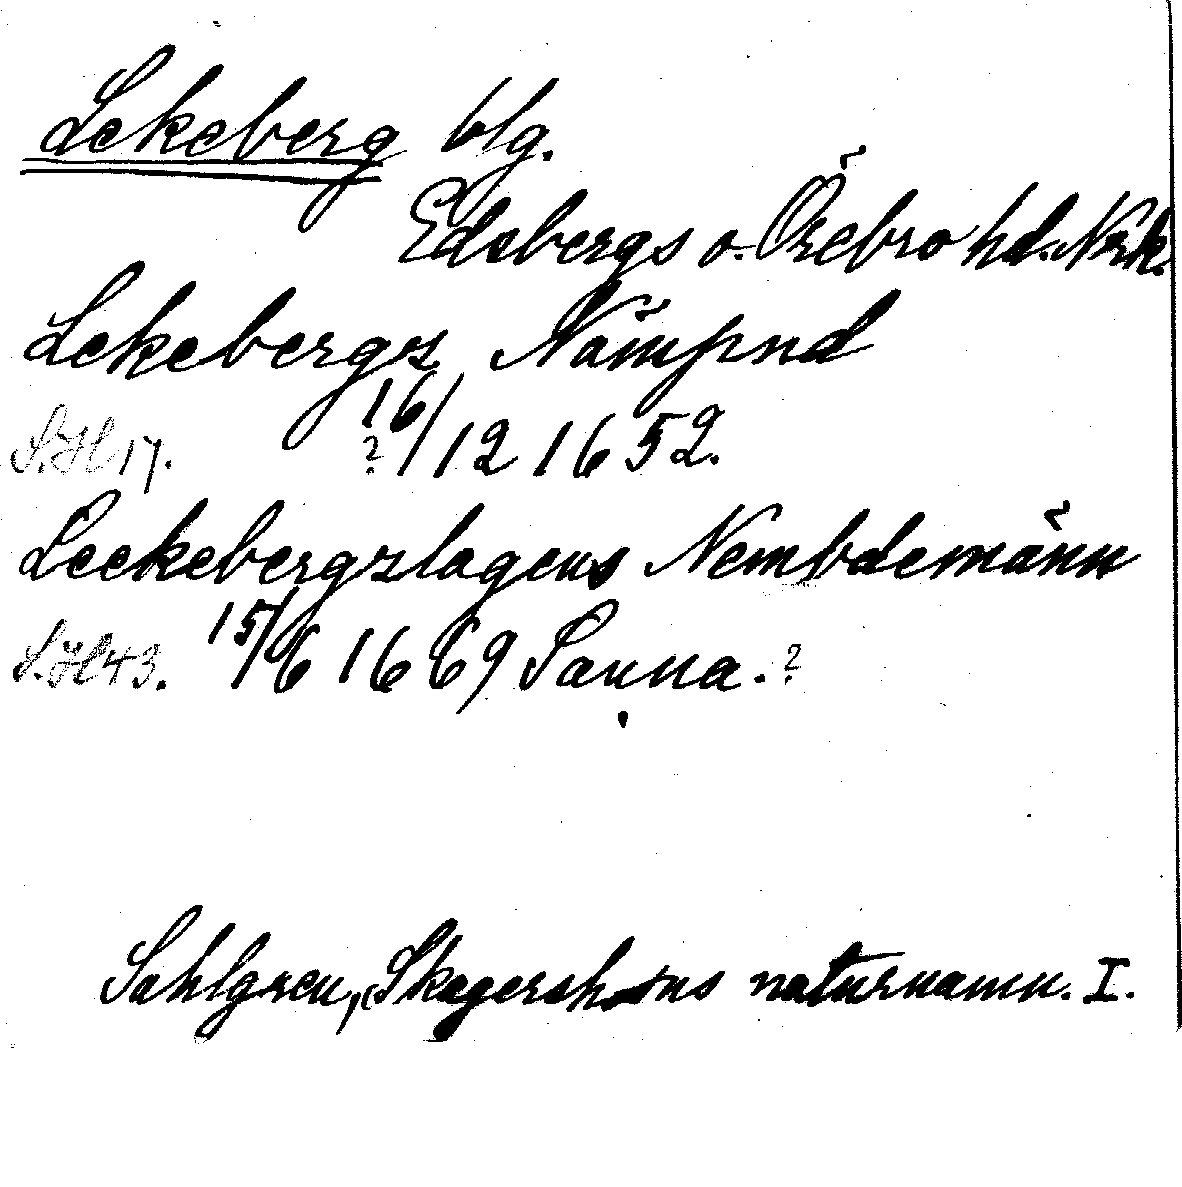 Lekeberg blg.
Edsbergs o. Örebro hd. Nrk.
Lekebergz Nämpnd
S.H 17. ? 16/12 1652.
Leekebergzlagens Nembdemänn
S.H 43. 15/6 1669 Sanna. ?
Sahlgren, Skagershults naturnamn. I.